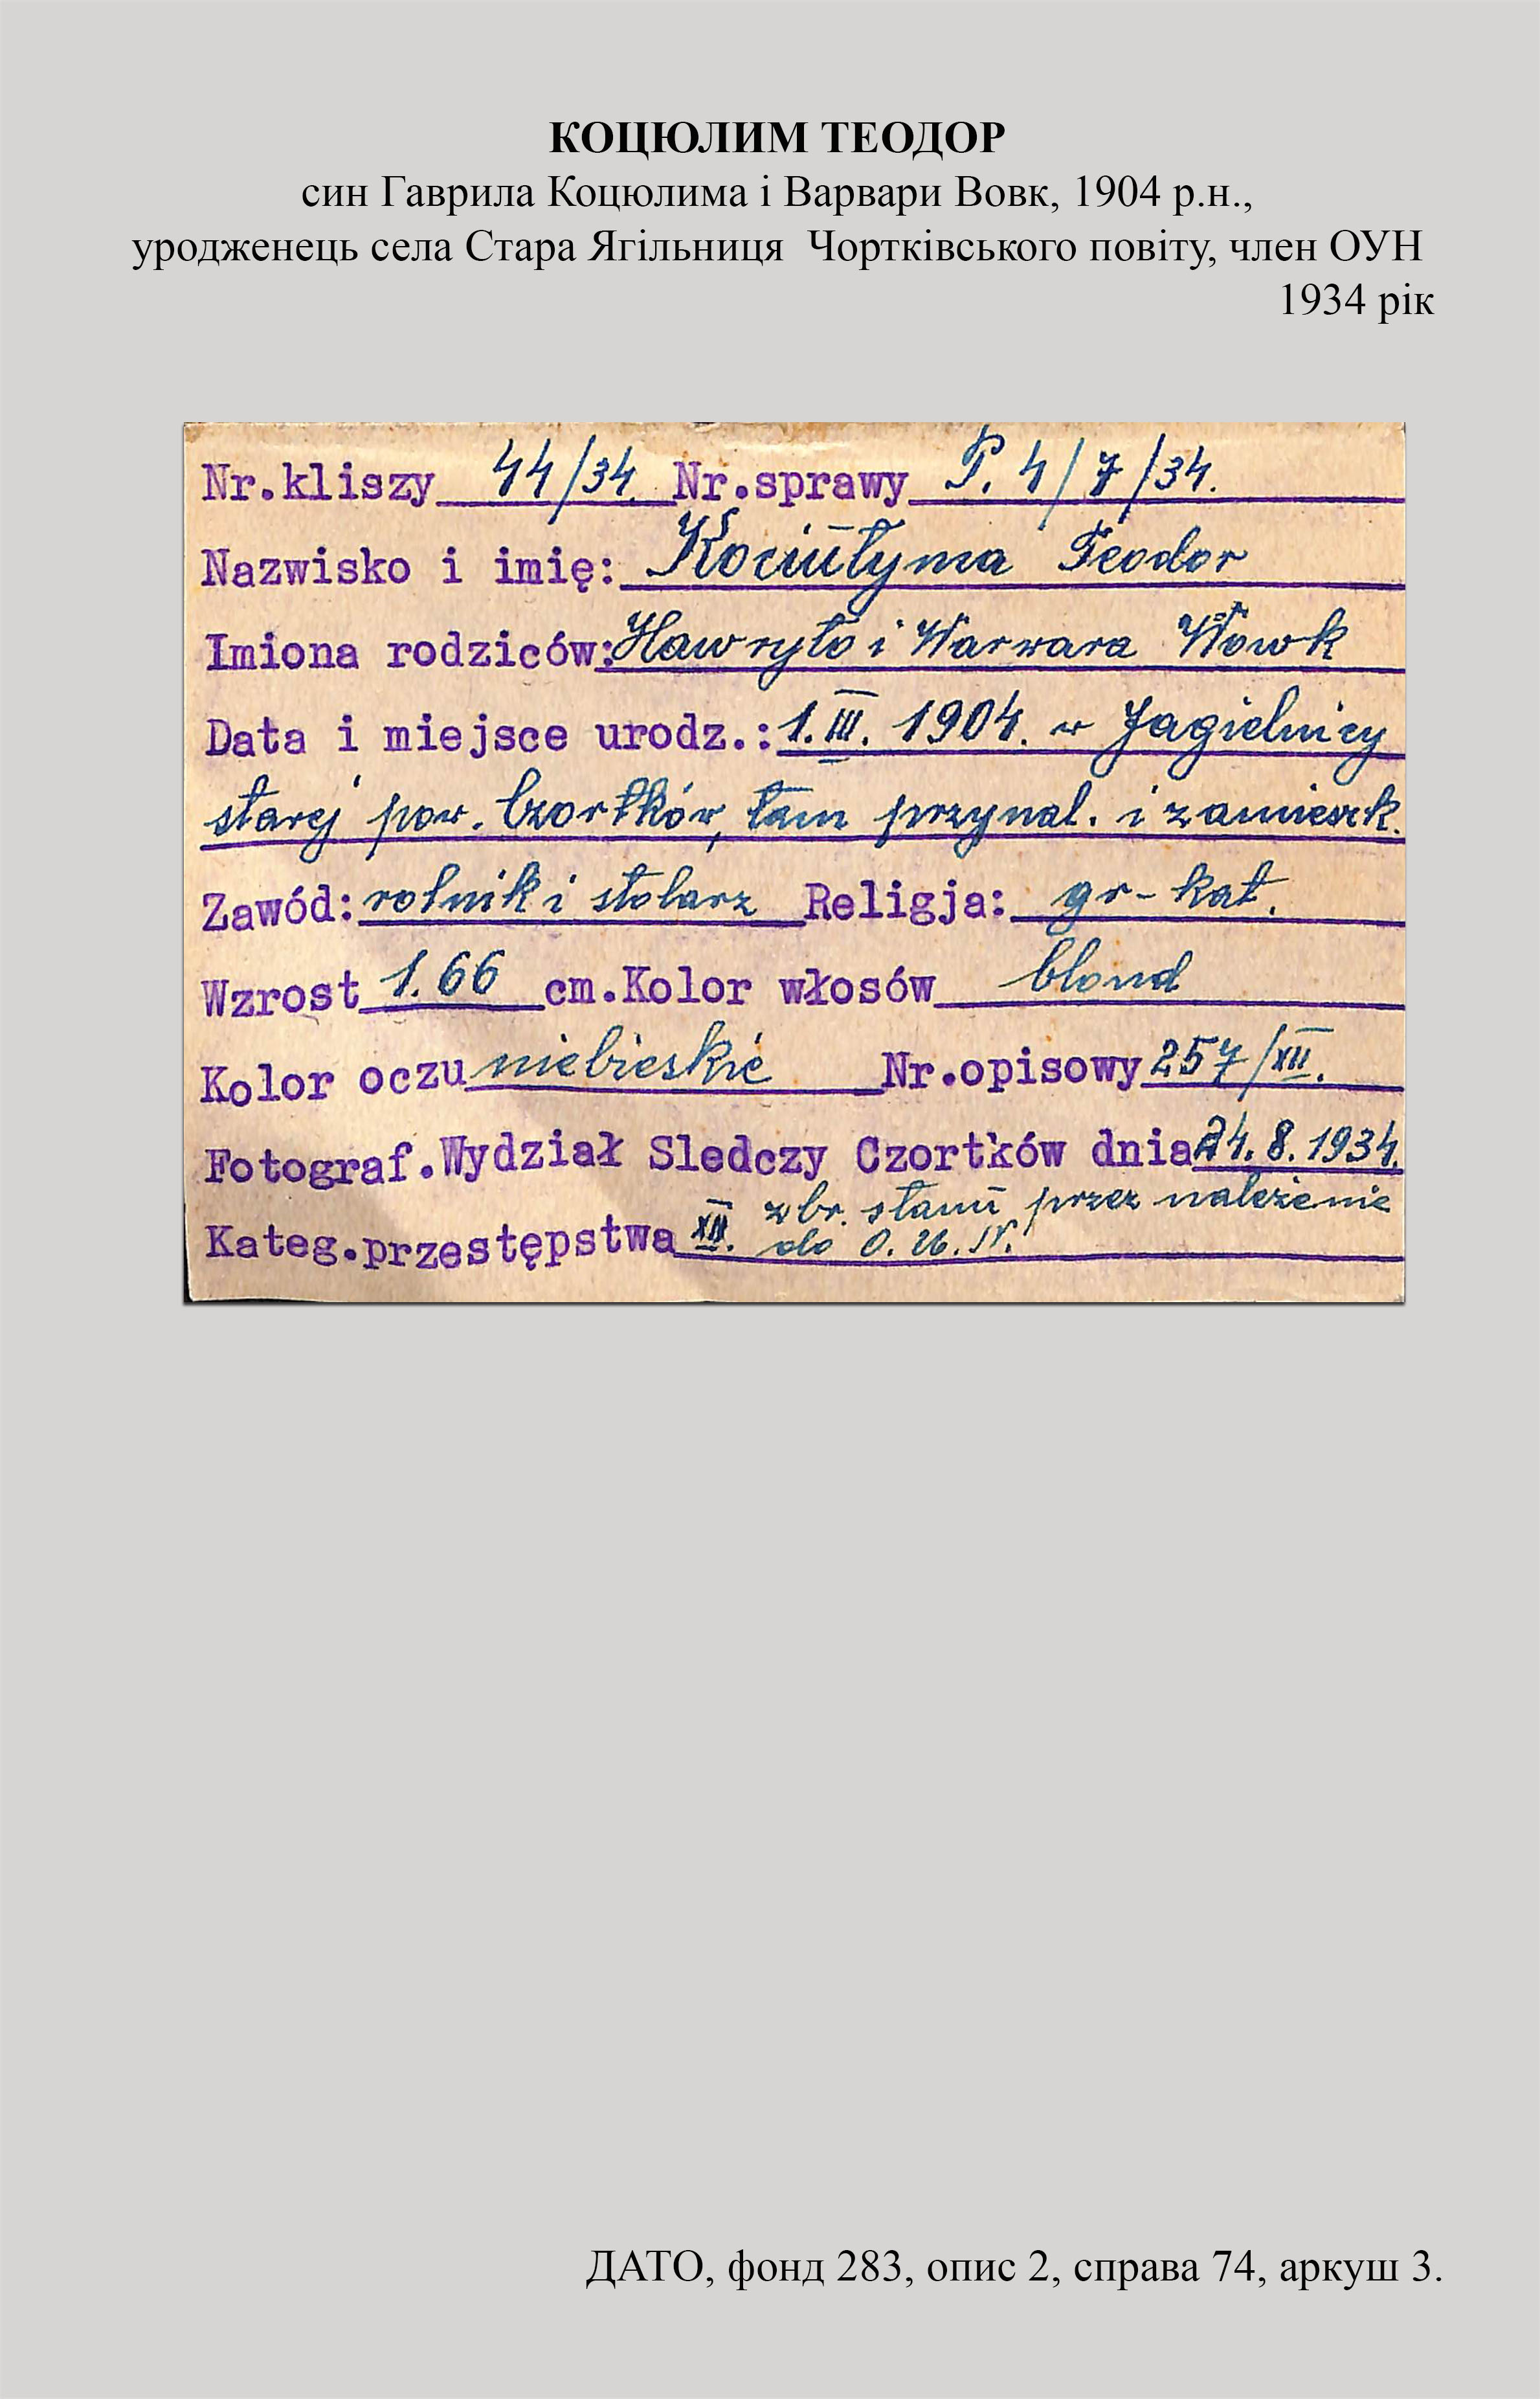 КОЦЮЛИМ ТЕОДОР
син Гаврила Коцюлима і Варвари Вовк, 1904 р.н.,
уродженець села Стара Ягільниця Чортківського повіту, член ОУН
1934 рік
Nr.kliszy 44/34. Nr.sprawy P. 4/7/34.
Nazwisko i imię: Kociułyma Teodor
Imiona rodziców: Hawryło i Warwara Wowk
Data i miejsce urodz.: 1.III. 1904. w Jagielnicy
starej pow. Czortków, tam przynal. i zamieszk.
Zawód: rolnik i stolarz Religja: gr-kat.
Wzrost 1.66 cm. Kolor włosów blond
Kolor oczu niebieskie Nr.opisowy 257/XII.
Fotograf. Wydział Sledczy Czortków dnia 24.8.1934.
Kateg.przestępstwa XII. zbr. stanu przez należenie
do O.U.N.
ДАТО, фонд 283, опис 2, справа 74, аркуш 3.